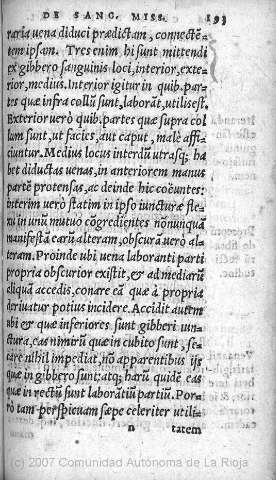 DE SANG. MISS. 193
raria uena diduci prædictam, connectē-
tem ipsam. Tres enim hi sunt mittendi
ex gibbero sanguinis loci, interior, exte-
rior, medius. Interior igitur in quib. par-
tes quæ infra collū sunt, laborāt, utilis est.
Exterior uerò quib. partes quæ supra col
lum sunt, ut facies, aut caput, malè affi-
ciuntur. Medius locus interdū utrasq; ha
bet diductas uenas, in anteriorem manus
partē protensas, ac deinde hic coëuntes:
interim uerò statim in ipso iuncturæ fle-
xu in unū mutuò cōgredientes nōnunquā
manifestā earū alteram, obscurā uerò al-
teram. Proinde ubi uena laboranti parti
propria obscurior existit, & ad mediarū
aliquā accedis, conare eā quæ à propria
deriuatur potius incidere. Accidit autem
ubi & quæ inferiores sunt gibberi iun-
ctura, eas nimirū quæ in cubito sunt, se-
tare nihil impediat, nō apparentibus ijs
quæ in gibbero sunt: atq; harū quidē eas
quæ in rectū sunt laborātiū partiū. Por-
rò tam perspicuam sæpe celeriter utili-
n tatem
(c) 2007 Comunidad Autónoma de La Rioja